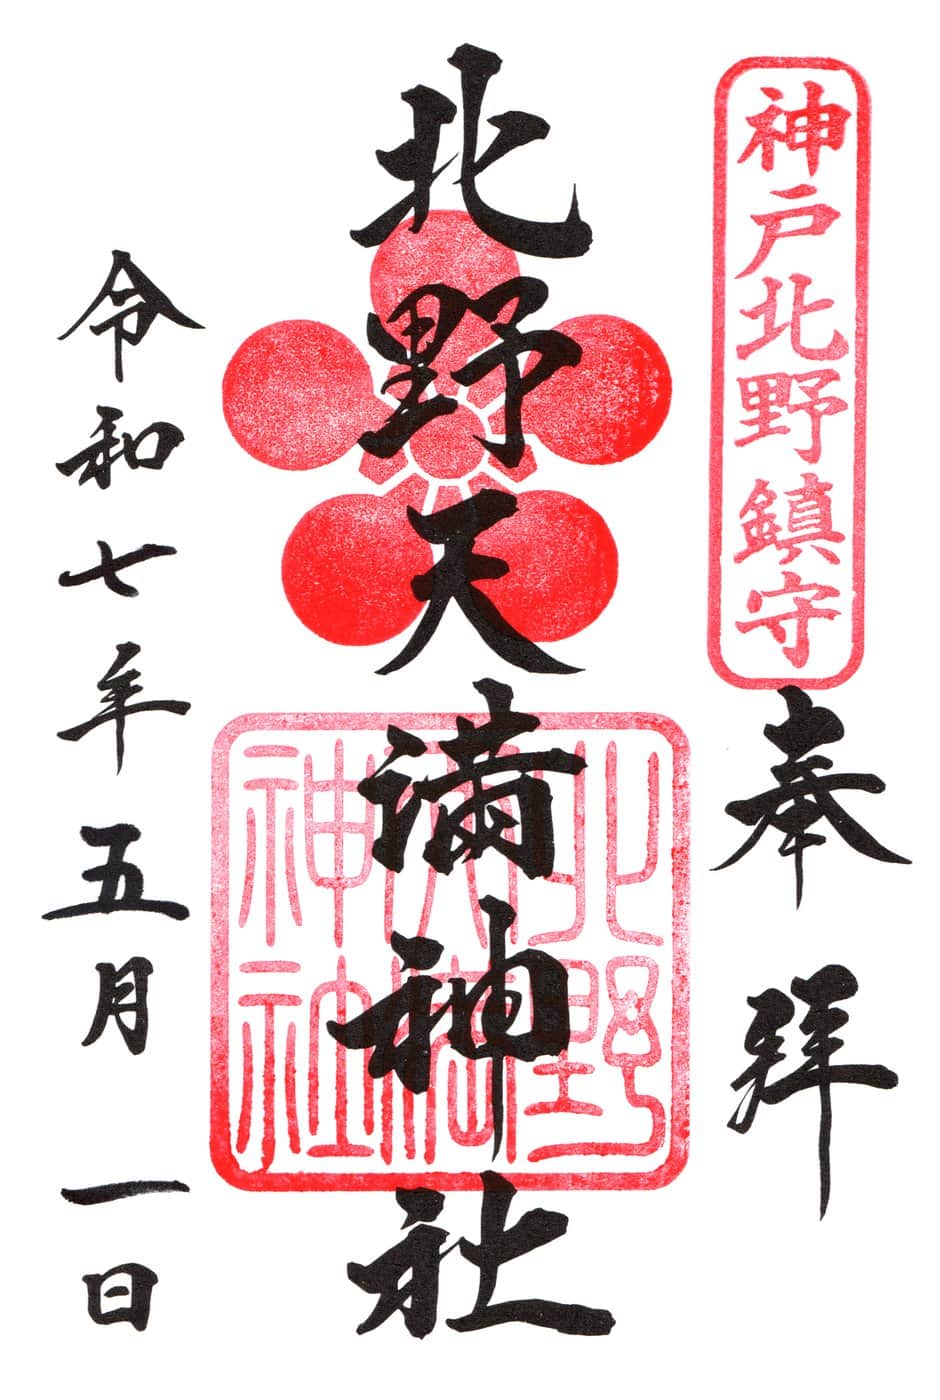 神戸北野鎮守
奉拝
北野天満神社
北野
天満
神社
令和七年五月一日